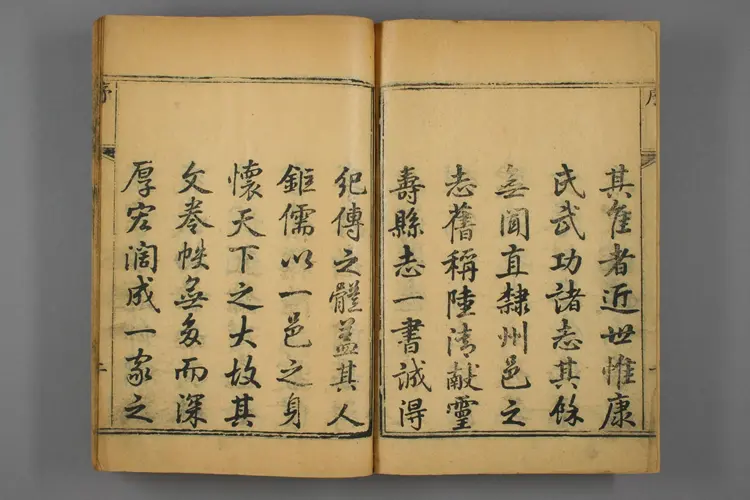 其佳者近世惟康
氏武功諸志其餘
無聞直隸州邑之
志舊稱陸清獻靈
壽縣志一書誠得
紀傳之體蓋其人
鉅儒以一邑之身
懷天下之大故其
文卷帙無多而深
厚宏濶成一家之
序